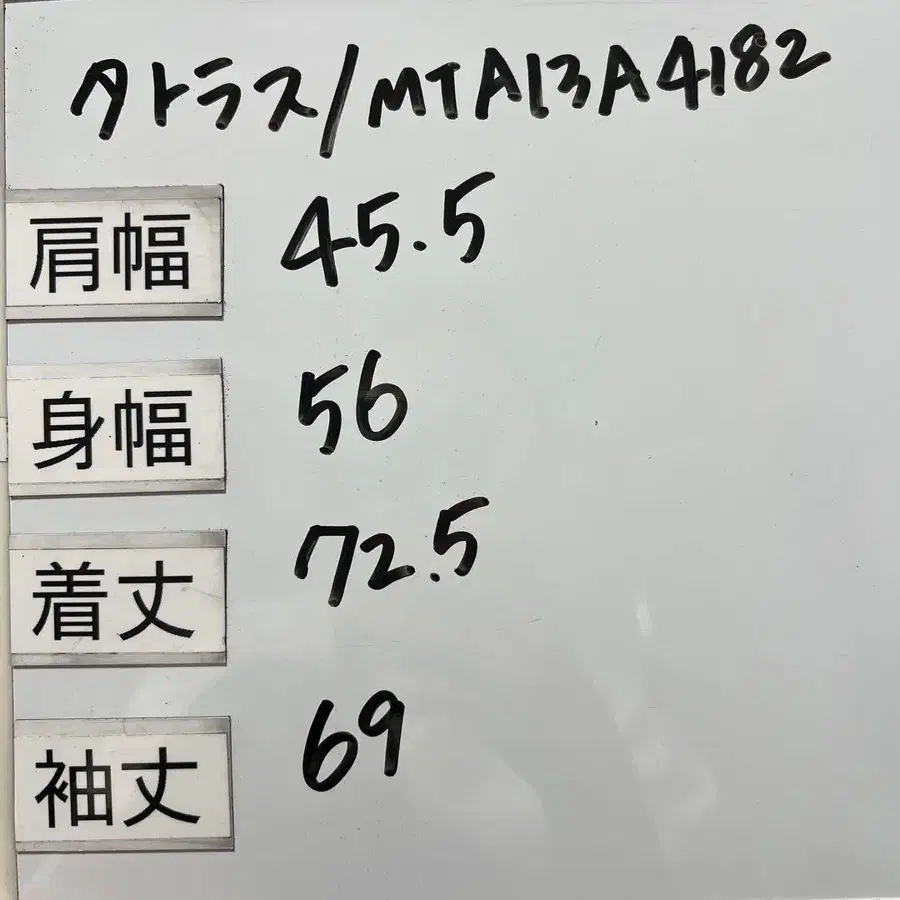 タトラス/MTA13A4182
肩幅 45.5
身幅 56
着丈 72.5
袖丈 69